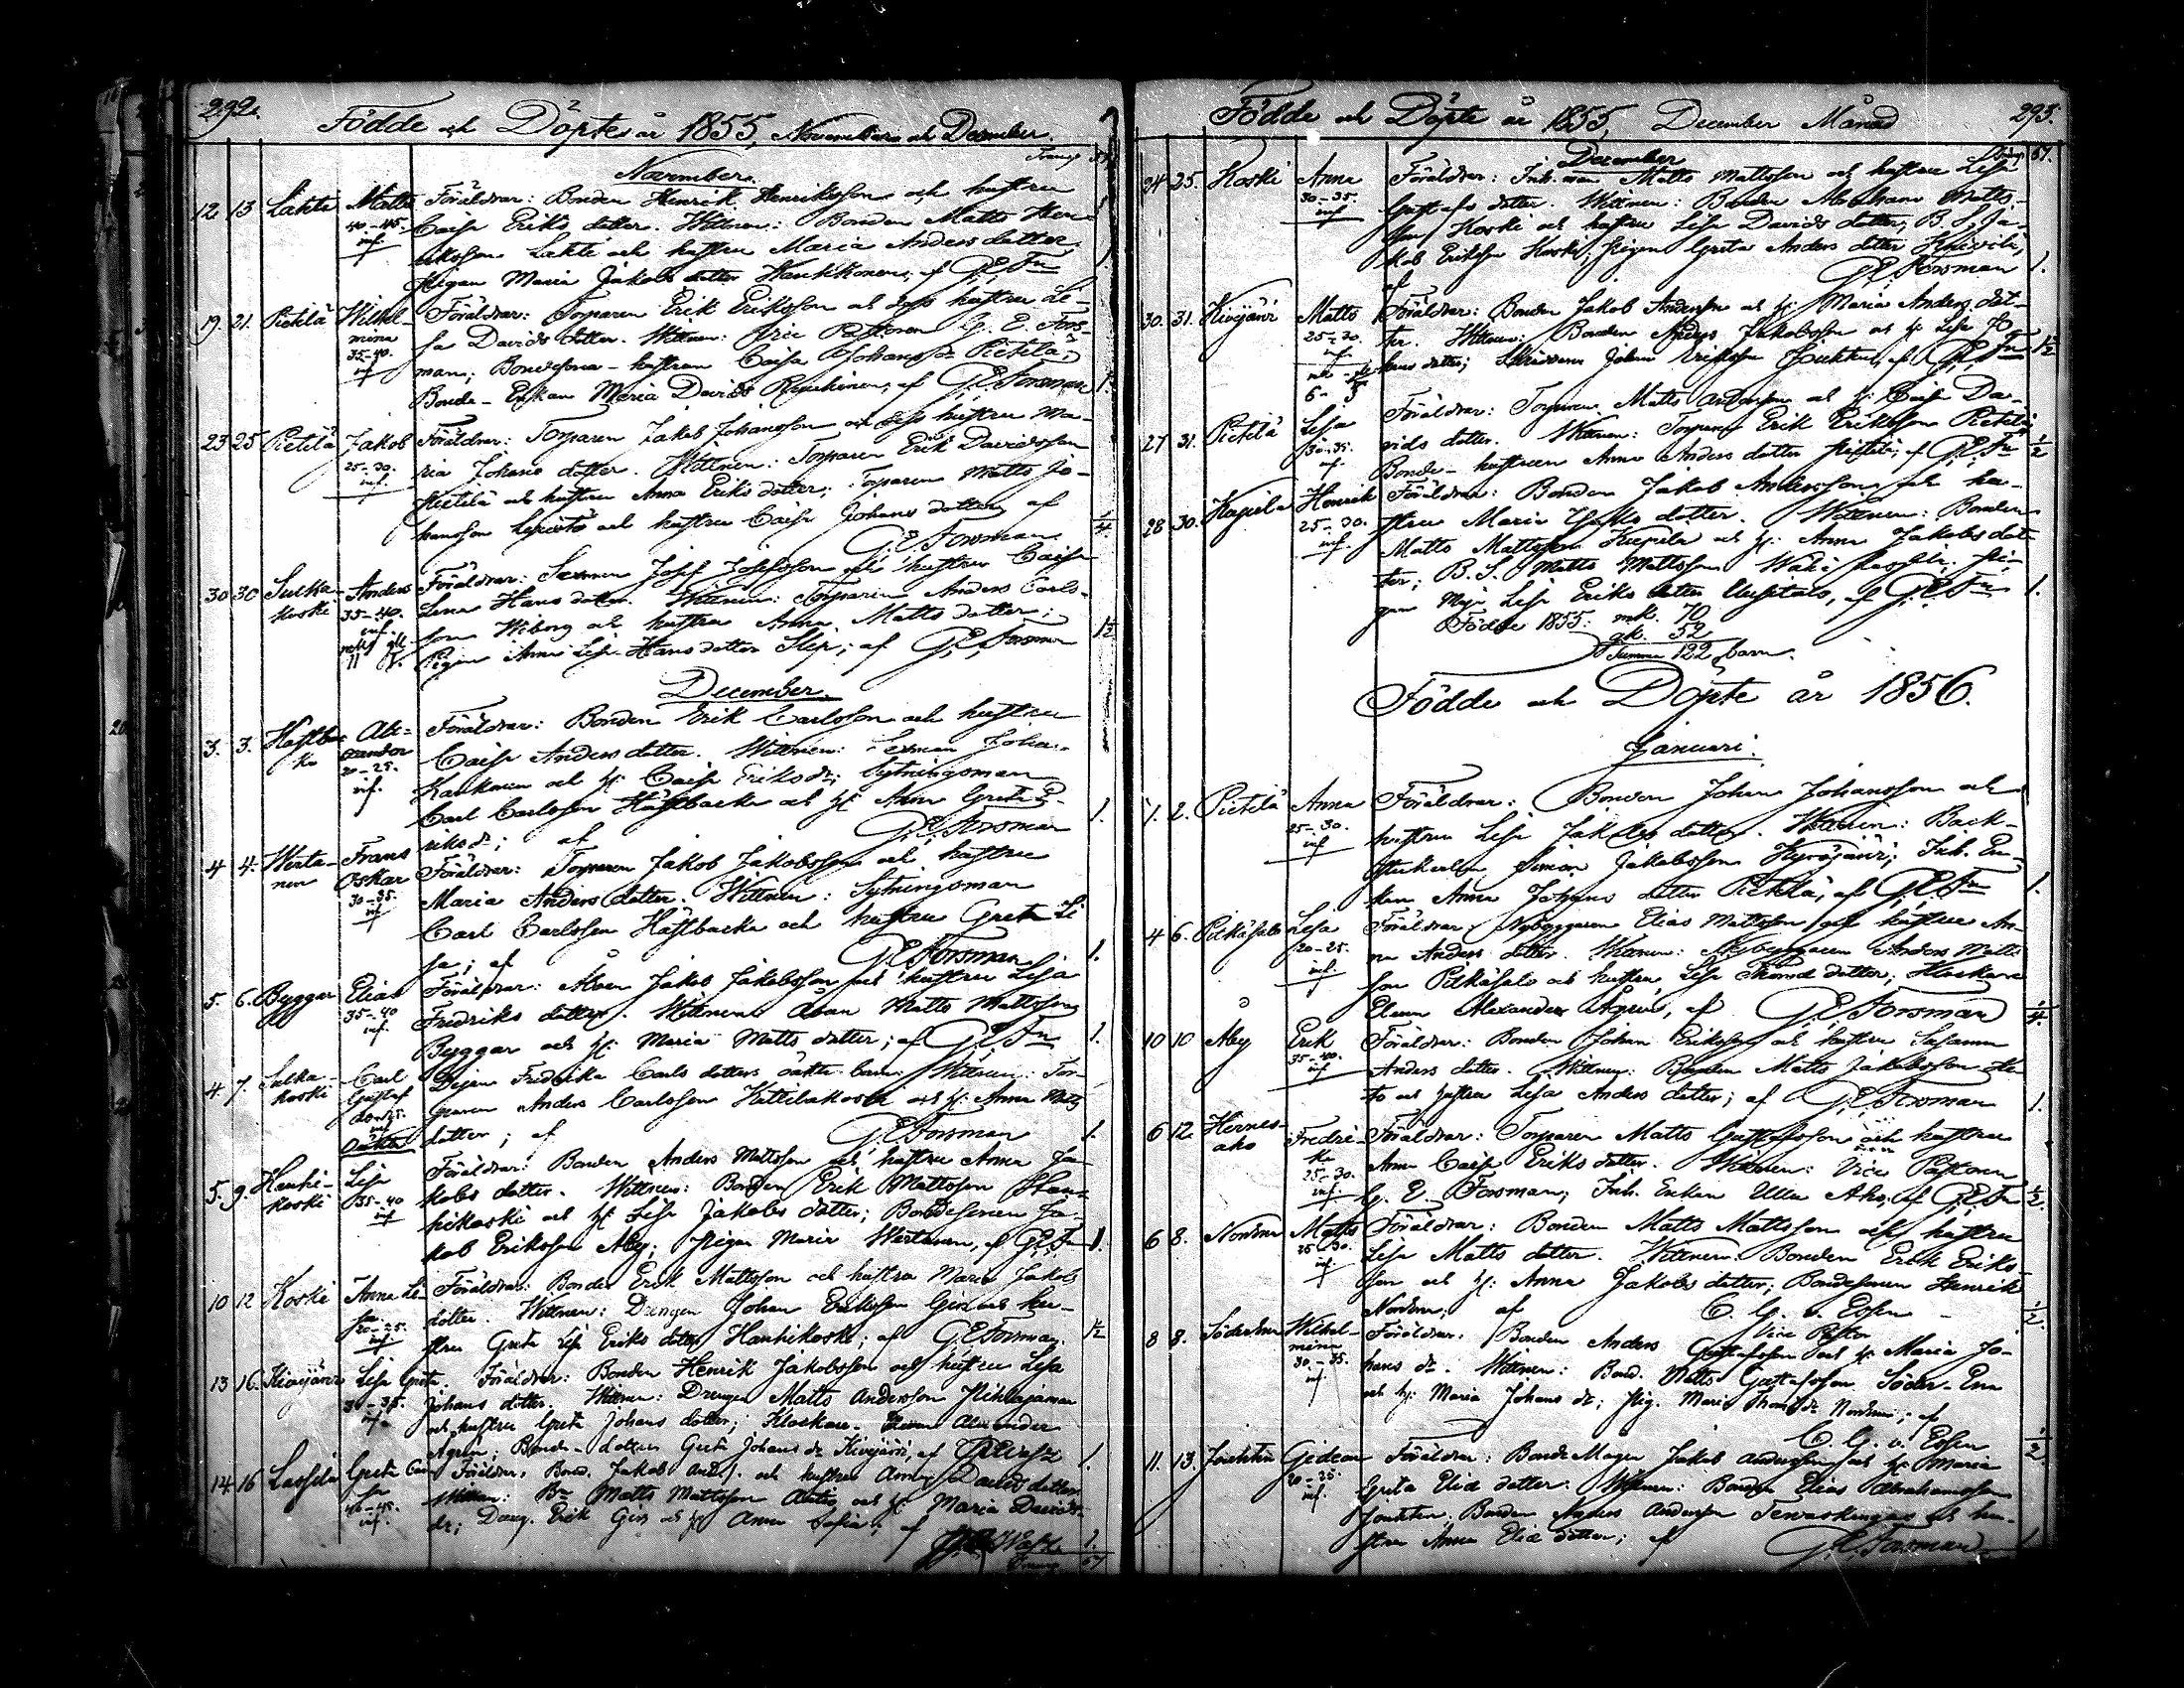 292.
Födde och Döpte år 1855, November och December.
November.
12 13 Lahti Matts Föräldrar: Bonden Henrik Henriksson och hustru
40-45. Caisa Eriks dotter. Wittnen: Bonden Matts Hen-
inf. riksson Lahti och hustru Maria Anders dotter
Pigan Maria Jakobs dotter af G.E.Fn 1
19. 21. Pietilä Wilhel- Föräldrar: Torparen Erik Eriksson och dess hustru Li-
mina sa Davids dotter. Wittnen: Vice Pastoren G. E. Fors-
35-40. man; Bondesona-hustrun Caisa Johansdr Pietilä;
inf Bonde-Enkan Maria Davids af G.E.Forsman 1.
23 25 Pietilä Jakob Föräldrar: Torparen Jakob Johansson och dess hustru Ma-
25-30. ria Johans dotter. Wittnen: Torparen Erik Davidsson
inf. Pietilä och hustru Anna Eriks dotter; Torparen Matts Jo-
hansson och hustru Caisa Johans dotter, af
G.E.Forsman 1/4
30 30 Sulka- Anders Föräldrar: Josef Josefsson och hustru Caisa
koski 35-40. Lena Hans dotter. Wittnen: Torparen Anders Carls-
inf. son Wiborg och hustru Anna Matts dotter;
Pigan Anna Lisa Hans dotter af G.E.Forsman 1/2
December.
3. 3. Hästbac- Ale- Föräldrar: Bonden Erik Carlsson och hustru
ka xander Caisa Anders dotter. Wittnen: Johan
20-25. och h: Caisa Eriks dr; Sytningsman
inf. Carl Carlsson Hästbacka och h: Anna Greta E-
riks dr; af G.E.Forsman 1.
4 4. Werta- Frans Föräldrar: Torparen Jakob Jakobsson och hustru
nen Oskar Maria Anders dotter. Wittnen: Sytningsman
30-35. Carl Carlsson Hästbacka och hustru Greta Li
inf sa; af G.E.Forsman 1.
5. 6. Byggar Elias Föräldrar: Jakob Jakobsson och hustru Lisa
35-40 Fredriks dotter. Wittnen: Matts Mattsson
inf. Byggar och h: Maria Matts dotter; af G.E.Fn 1.
4 7. Sulka- Carl Pigan Fredrika Carls dotters oäkta barn: Wittnen: Tor-
koski Gustaf paren Anders Carlsson och h: Anna Matts
inf dotter; af G.E.Forsman 1.
oäkta
5. 9. Hanhi- Lisa Föräldrar: Bonden Anders Mattsson och hustru Anna Ja-
koski 35-40 kobs dotter. Wittnen: Bonden Erik Mattsson Han-
inf hikoski och h: Lisa Jakobs dotter; Bondesonen Ja-
kob Eriksson Aby; Pigan Maria Wertanen, af G.E.Fn 1.
10 12 Koski Anna Li- Föräldrar: Bonden Erik Mattsson och hustru Maria Jakobs
sa dotter. Wittnen: Drengen Johan Eriksson och hu-
20-25. stru Greta Lisa Eriks dotter Hanhikoski; af G.E.Forsman. 1/2
inf
13 16. Kivijärvi Lisa Greta Föräldrar: Bonden Henrik Jakobsson och hustru Lisa
30-35. Johans dotter. Wittnen: Drengen Matts Andersson
inf. och hustru Greta Johans dotter; Klockare-Eleven Alexander
Agren; Bonde-dottern Greta Johans dr Kivijärvi, af 1.
14 16 Lassila Greta Cai- Föräldrar: Bond. Jakob Ands. och hustru Anna Davids dotter
sa Wittnen: Matts Mattsson och h: Maria Davids
40-45. dr; Dreng. Erik och h: Anna Sofia; af
inf. 1.
67
Födde och Döpte år 1855, December Månad 293.
December 67.
24 25. Koski Anna Föräldrar: Inh. Matts Mattsson och hustru Lisa
30-35. Gustafs dotter. Wittnen: Bonden Abraham Matts-
inf son Koski och hustru Lisa Davids dotter, B. S. Ja-
kob Eriksson Koski; Pigan Greta Anders dotter
af G.E.Forsman 1.
30. 31. Kivijärvi Matts Föräldrar: Bonden Jakob Andersson och h: Maria Anders dot-
25-30. ter. Wittnen: Bonden Anders Jakobsson och h: Lisa Jo-
inf. hans dotter; Johan Eriksson af G.E.Fn 1/2
27 31. Pietilä Lisa Föräldrar: Torparen Matts Andersson och h: Caisa Da-
30-35. vids dotter. Wittnen: Torparen Erik Eriksson Pietilä;
inf. Bonde-hustrun Anna Anders dotter Pietilä; af G.E.Fn 1/2
28 30. Henrik Föräldrar: Bonden Jakob Andersson och hu-
25-30. stru Maria dotter. Wittnen: Bonden
inf. Matts Mattsson och h: Anna Jakobs dot
ter; B. S. Matts Mattsson Pi-
gan Maja Lisa Eriks dotter Uusitalo, af G.E.Fn 1.
Födde 1855: mk. 70
qk. 52
Summa 122 barn.
Födde och Döpte år 1856.
Januari.
1. 2. Pietilä Anna Föräldrar: Bonden Johan Johansson och
25-30. hustrun Lisa Jakobs dotter. Wittnen: Back-
inf stukarlen Simon Jakobsson Inh. En-
kan Anna Johans dotter Pietilä, af G.E.Fn 1.
4 6. Pitkäsalo Lisa Föräldrar: Nybyggaren Elias Mattsson och hustru An-
20-25. na Anders dotter. Wittnen: Nybyggaren Anders Matts
inf. son Pitkäsalo och hustru Lisa dotter; Klockare
Eleven Alexander Agren, af G.E.Forsman 1/4
10 10 Aby Erik Föräldrar: Bonden Johan Eriksson och hustru Susanna
35-40. Anders dotter. Wittnen: Bonden Matts Jakobsson
inf och hustru Lisa Anders dotter; af G.E.Forsman 1.
6 12. Hernes- Fredri- Föräldrar: Torparen Matts Gustafsson och hustru
aho ka Anna Caisa Eriks dotter. Wittnen: Vice Pastoren
25-30. G. E. Forsman; Inh. Enkan Ulla Aho, af G.E.Fn 1/2.
inf.
6 8. Matts Föräldrar: Bonden Matts Mattsson och hustru
25-30. Lisa Matts dotter. Wittnen: Bonden Erik Eriks-
inf. son och h: Anna Jakobs dotter; Bondesonen Henrik
af C. G. v. Essen 1/2.
Vice Pastor
8 8. Wilhel- Föräldrar: Bonden Anders Gustafsson och h: Maria Jo-
mina hans dr. Wittnen: Bond. Matts Gustafsson
30-35. och h: Maria Johans dr; Pig. Maria af
inf. C. G. v. Essen 1/2
11. 13. Gideon Föräldrar: Jakob Andersson och h: Maria
20-25. Greta Eliæ dotter. Wittnen: Bonden Elias Abrahamsson
inf. Bonden Anders Andersson och hu-
stru Anna Eliæ dotter; af G.E.Forsman 1